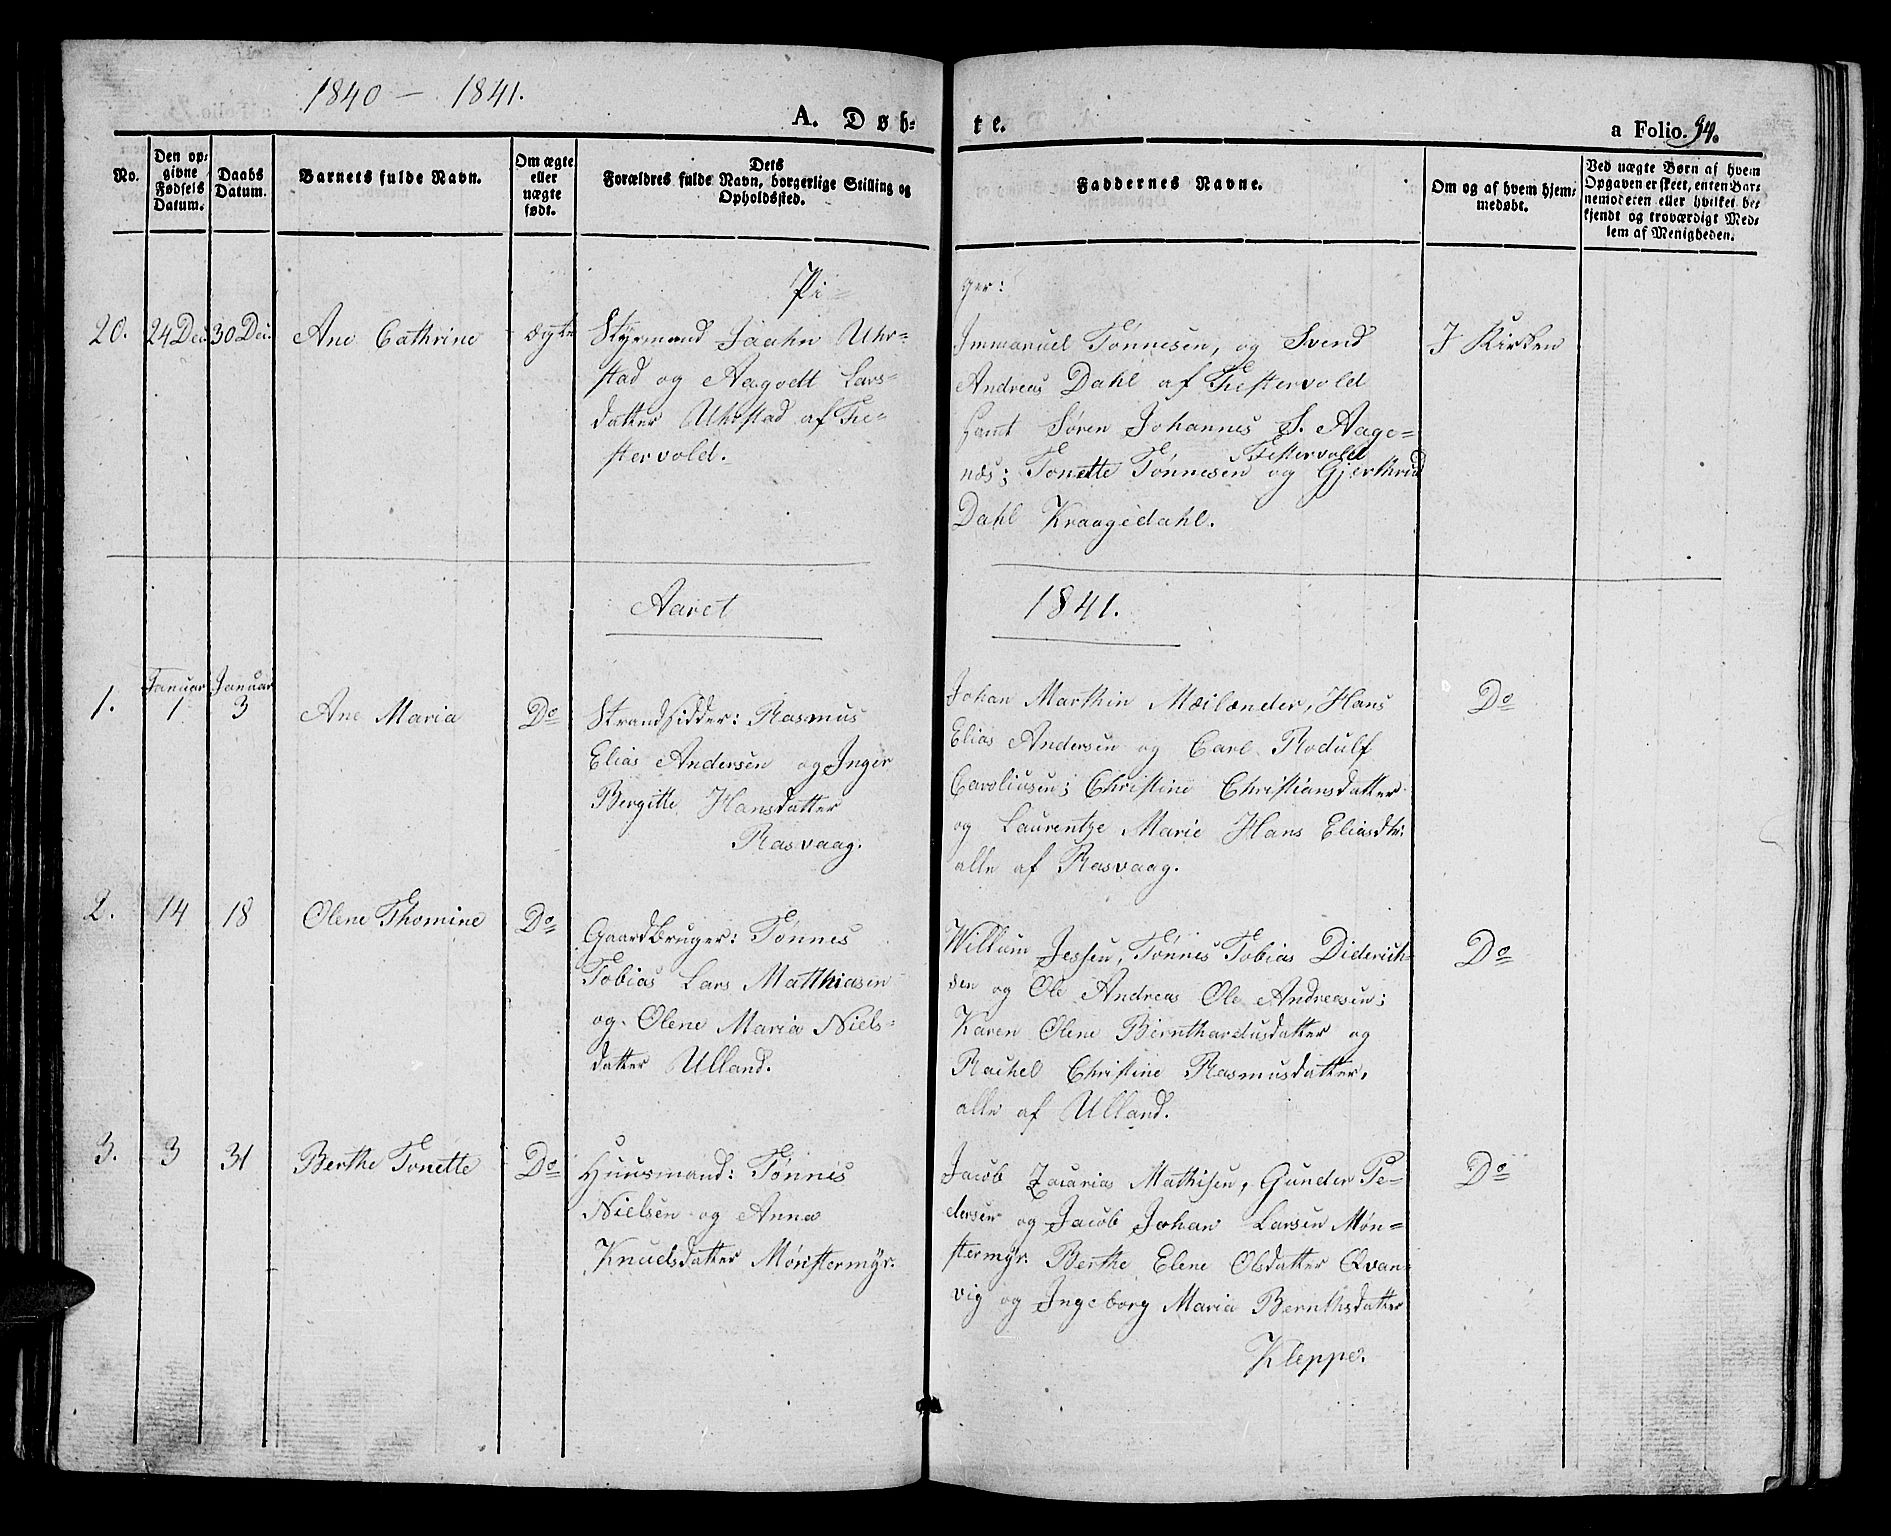 1840 — 1841.
A. Døb-
te.
a Folio. 94.
No.
Den op-
givne
Fødsels
Datum.
Daabs
Datum.
Barnets fulde Navn.
Om ægte
eller
uægte
født.
Dets
Forældres fulde Navn, borgerlige Stilling og
Opholdssted.
Faddernes Navne.
Om og af hvem hjem-
medøbt.
Ved uægte Børn af hvem
Opgaven er skeet, enten Bar-
nemoderen eller hvilket be-
kjendt og troværdigt Med-
lem af Menigheden.
Pi-
ger:
20.
24 Dec.
30 Dec.
Ane Cathrine
ægte
Styrmand Jaahn Uhr-
stad og Aagodt Lars-
datter Uhrstad af Fie-
stervold.
Immanuel Tønnesen, og Svend
Andreas Dahl af Fiestervold
samt Søren Johannes S. Aage-
Fiestervold
næs; Tonette Tønnesen og Gjerthrud
Dahl Kraagedahl.
I Kirken
Aaret
1841.
1.
Januar
1
Januar
3
Ane Maria
Do
Strandsidder: Rasmus
Elias Andersen og Inger
Bergitte Hansdatter
Rasvaag.
Johan Marthin Meilænder, Hans
Elias Andersen og Carl Rodulf
Caroliusen; Christine Christiansdatter
og Laurentze Marie Hans Eliasdtr.
alle af Rasvaag.
Do
2.
14
18
Olene Thomine
Do
Gaardbruger: Tønnes
Tobias Lars Matthiasen
og Olene Maria Niels-
datter Ulland.
Willum Jessen, Tønnes Tobias Diderich-
sen og Ole Andreas Ole Andreasen;
Karen Olene Bernthardusdatter og
Rachel Christine Rasmusdatter,
alle af Ulland.
Do
3.
3
31
Berthe Tonette
Do
Huusmand: Tønnes
Nielsen og Anna
Knudsdatter Mønstermÿr.
Jacob Zacarias Mathisen, Gunder Pe-
dersen og Jacob Johan Larsen Møn-
stermÿr. Berthe Elene Olsdatter Qvan-
vig og Ingeborg Maria Bernthsdatter
Kleppe.
Do